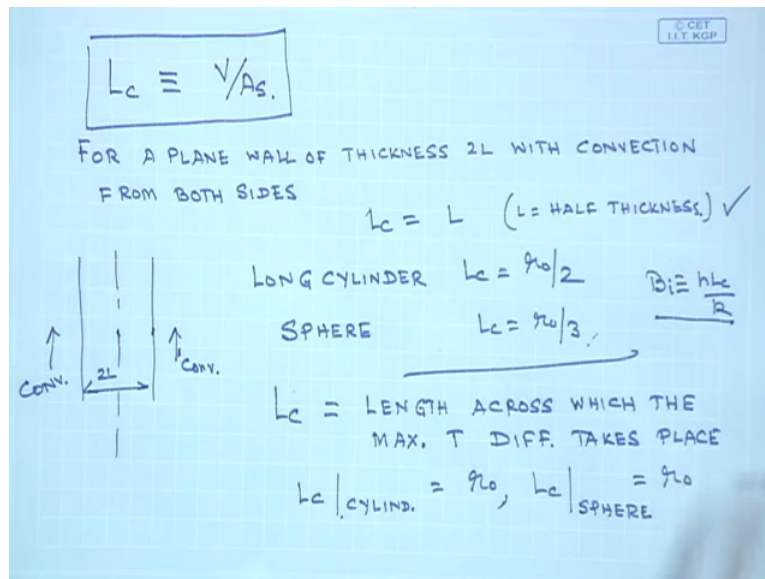 © CET
I.I.T. KGP
Lc ≡ V/As.
FOR A PLANE WALL OF THICKNESS 2L WITH CONVECTION
FROM BOTH SIDES
Lc = L (L = HALF THICKNESS.) ✓
LONG CYLINDER Lc = r0/2
Bi ≡ hLc/k
SPHERE Lc = r0/3.
CONV.
2L
CONV.
Lc = LENGTH ACROSS WHICH THE
MAX. T DIFF. TAKES PLACE
Lc|CYLIND. = r0, Lc|SPHERE = r0